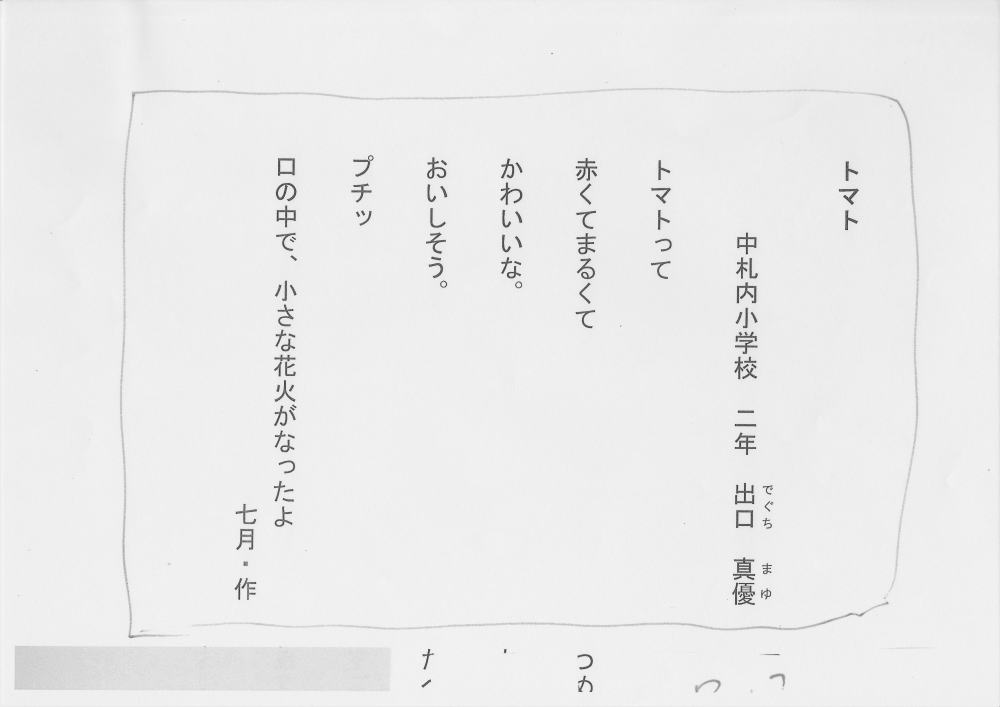 トマト
中札内小学校　二年　出口　真優
でぐち　まゆ
トマトって
赤くてまるくて
かわいいな。
おいしそう。
プチッ
口の中で、小さな花火がなったよ
七月・作